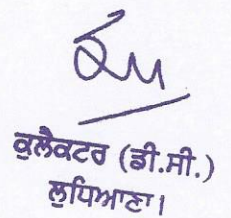 ਕੁਲੈਕਟਰ (ਡੀ.ਸੀ.)
ਲੁਧਿਆਣਾ।